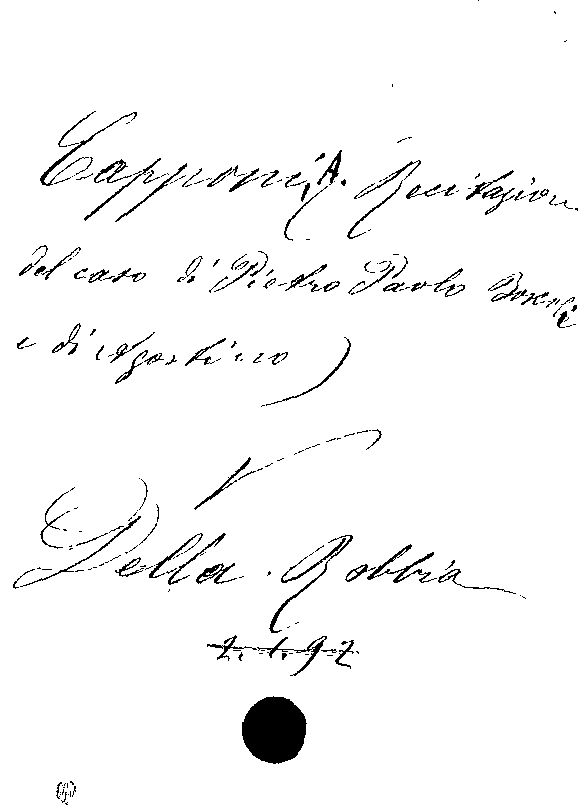 Capponi, A. Recitazion
del caso di Pietro Paolo Boscoli
e di Agostino )
V
Della Robbia
2. 1. 92